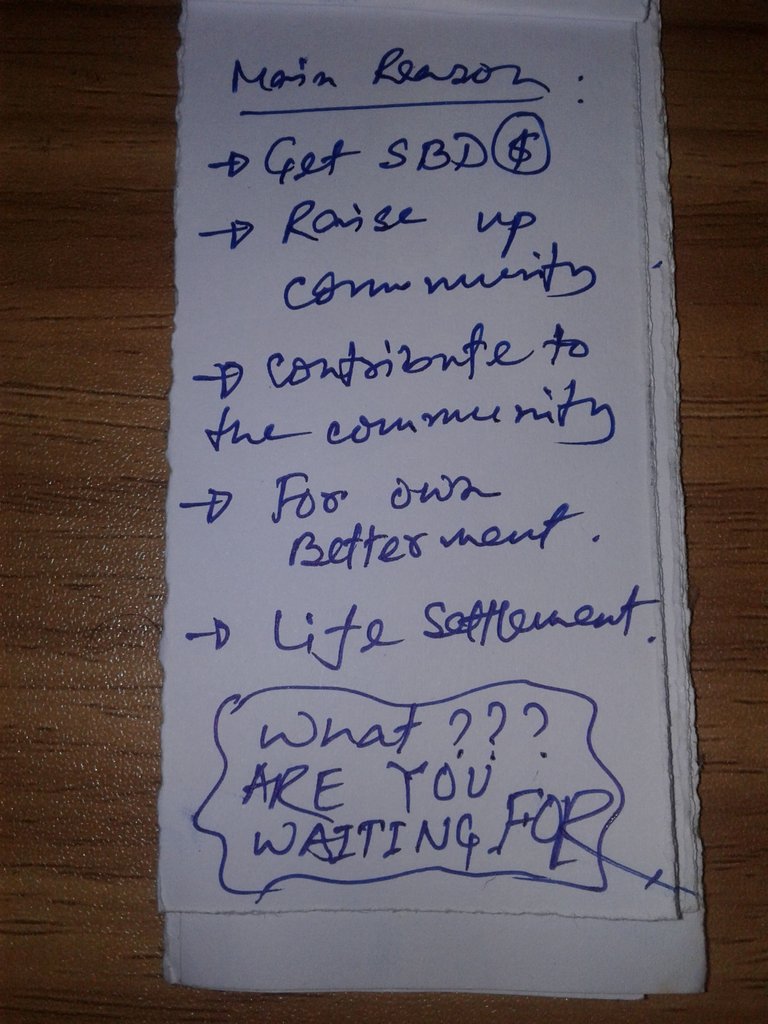 Main Reason :
→ Get SBD $
→ Raise up
community
→ contribute to
the community
→ For own
Betterment.
→ Life Settlement.
What ???
ARE YOU
WAITING FOR